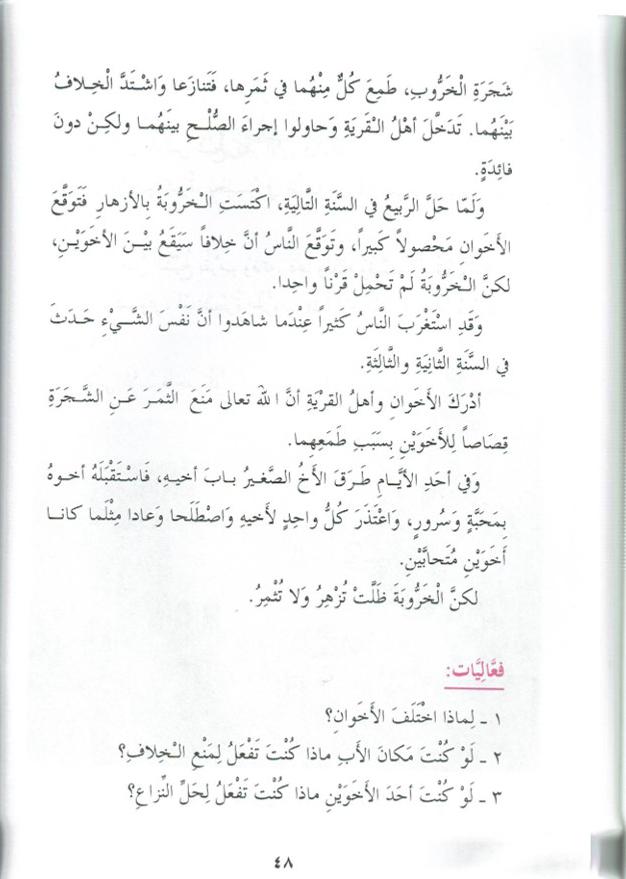 شَجَرَةِ الْخَرُّوبِ، طَمِعَ كُلٌّ مِنْهُما في ثَمَرِها، فَتَنازَعا وَاشْتَدَّ الْخِلافُ
بَيْنَهُما. تَدَخَّلَ أهْلُ الْقَرْيَةِ وَحاوَلوا إجراءَ الصُّلْحِ بينَهُما ولكِنْ دونَ
فائِدَةٍ.
وَلَمّا حَلَّ الرَّبيعُ في السَّنَةِ التَّالِيَةِ، اكْتَسَتِ الْخَرُّوبَةُ بِالأزهارِ فَتَوَقَّعَ
الأَخَوانِ مَحْصولاً كَبيراً، وتَوَقَّعَ النَّاسُ أنَّ خِلافاً سَيَقَعُ بَيْنَ الأخَوَيْنِ،
لكنَّ الْخَرُّوبَةُ لَمْ تَحْمِلْ قَرْناً واحِدا.
وَقَدِ اسْتَغْرَبَ النَّاسُ كَثيراً عِنْدَما شاهَدوا أنَّ نَفْسَ الشَّيْءِ حَدَثَ
في السَّنَةِ الثَّانِيَةِ والثَّالِثَةِ.
أدْرَكَ الأَخَوانِ وأهلُ القَرْيَةِ أنَّ اللهَ تعالى مَنَعَ الثَّمَرَ عَنِ الشَّجَرَةِ
قِصَاصاً لِلأَخَوَيْنِ بِسَبَبِ طَمَعِهِما.
وَفي أحَدِ الأيَّامِ طَرَقَ الأخُ الصَّغيرُ بابَ أخيهِ، فَاسْتَقْبَلَهُ أخوهُ
بِمَحَبَّةٍ وَسُرورٍ، وَاعْتَذَرَ كُلُّ واحِدٍ لأخيهِ وَاصْطَلَحا وَعادا مِثْلَما كانا
أَخَوَيْنِ مُتَحابَّيْنِ.
لكنَّ الْخَرُّوبَةَ ظَلَّتْ تُزْهِرُ وَلا تُثْمِرُ.
فعَّالِيَّات:
١ ـ لِماذا اخْتَلَفَ الأَخَوانِ؟
٢ ـ لَوْ كُنْتَ مَكانَ الأَبِ ماذا كُنْتَ تَفْعَلُ لِمَنْعِ الْخِلافِ؟
٣ ـ لَوْ كُنْتَ أحَدَ الأَخَوَيْنِ ماذا كُنْتَ تَفْعَلُ لِحَلِّ النِّزاعِ؟
٤٨